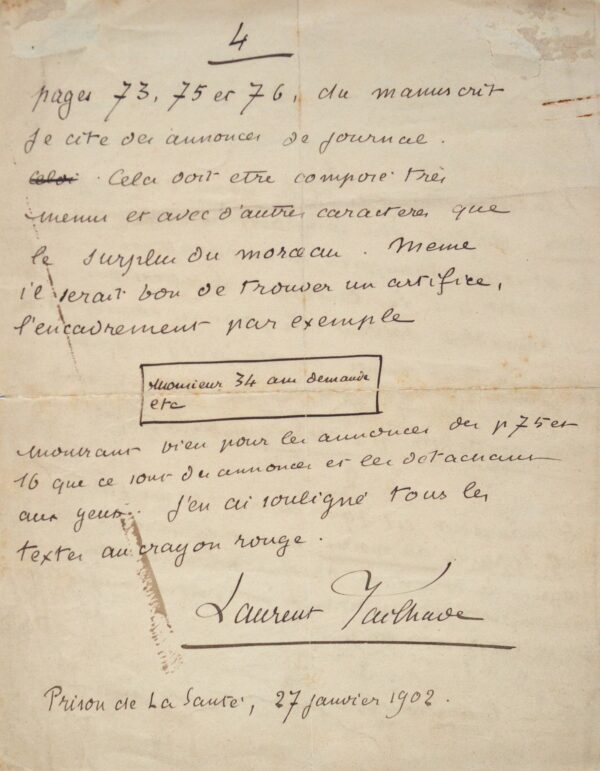 4
pages 73, 75 et 76, du manuscrit
Je cite des annonces de journal.
Cela doit etre composé très
menu et avec d'autres caracteres que
le surplus du morceau. Meme
il serait bon de trouver un artifice,
l'encadrement par exemple
Monsieur 34 ans demande
etc
montrant bien pour les annonces des p 75 et
16 que ce sont des annonces et les détachant
aux yeux. J'en ai souligné tous les
textes au crayon rouge.
Laurent Tailhade
Prison de La Santé, 27 janvier 1902.